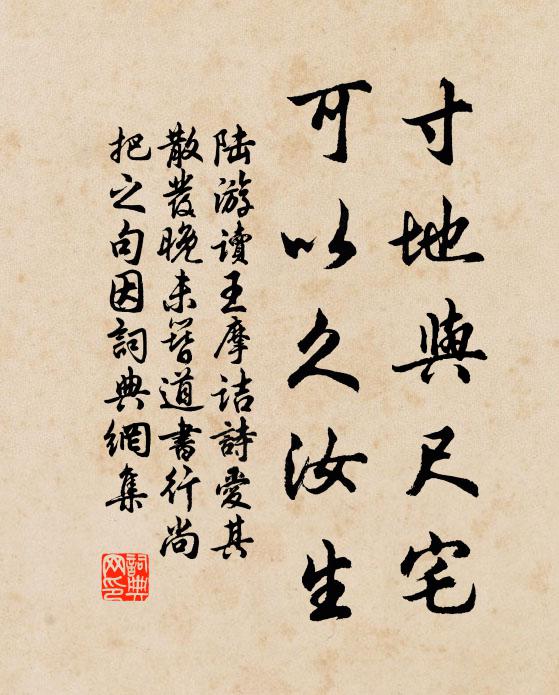 寸地與尺宅
可以久汝生
陸游讀王摩詰詩愛其
散發晚未簪道書行尚
把之句因詞典網集
詞典
网印